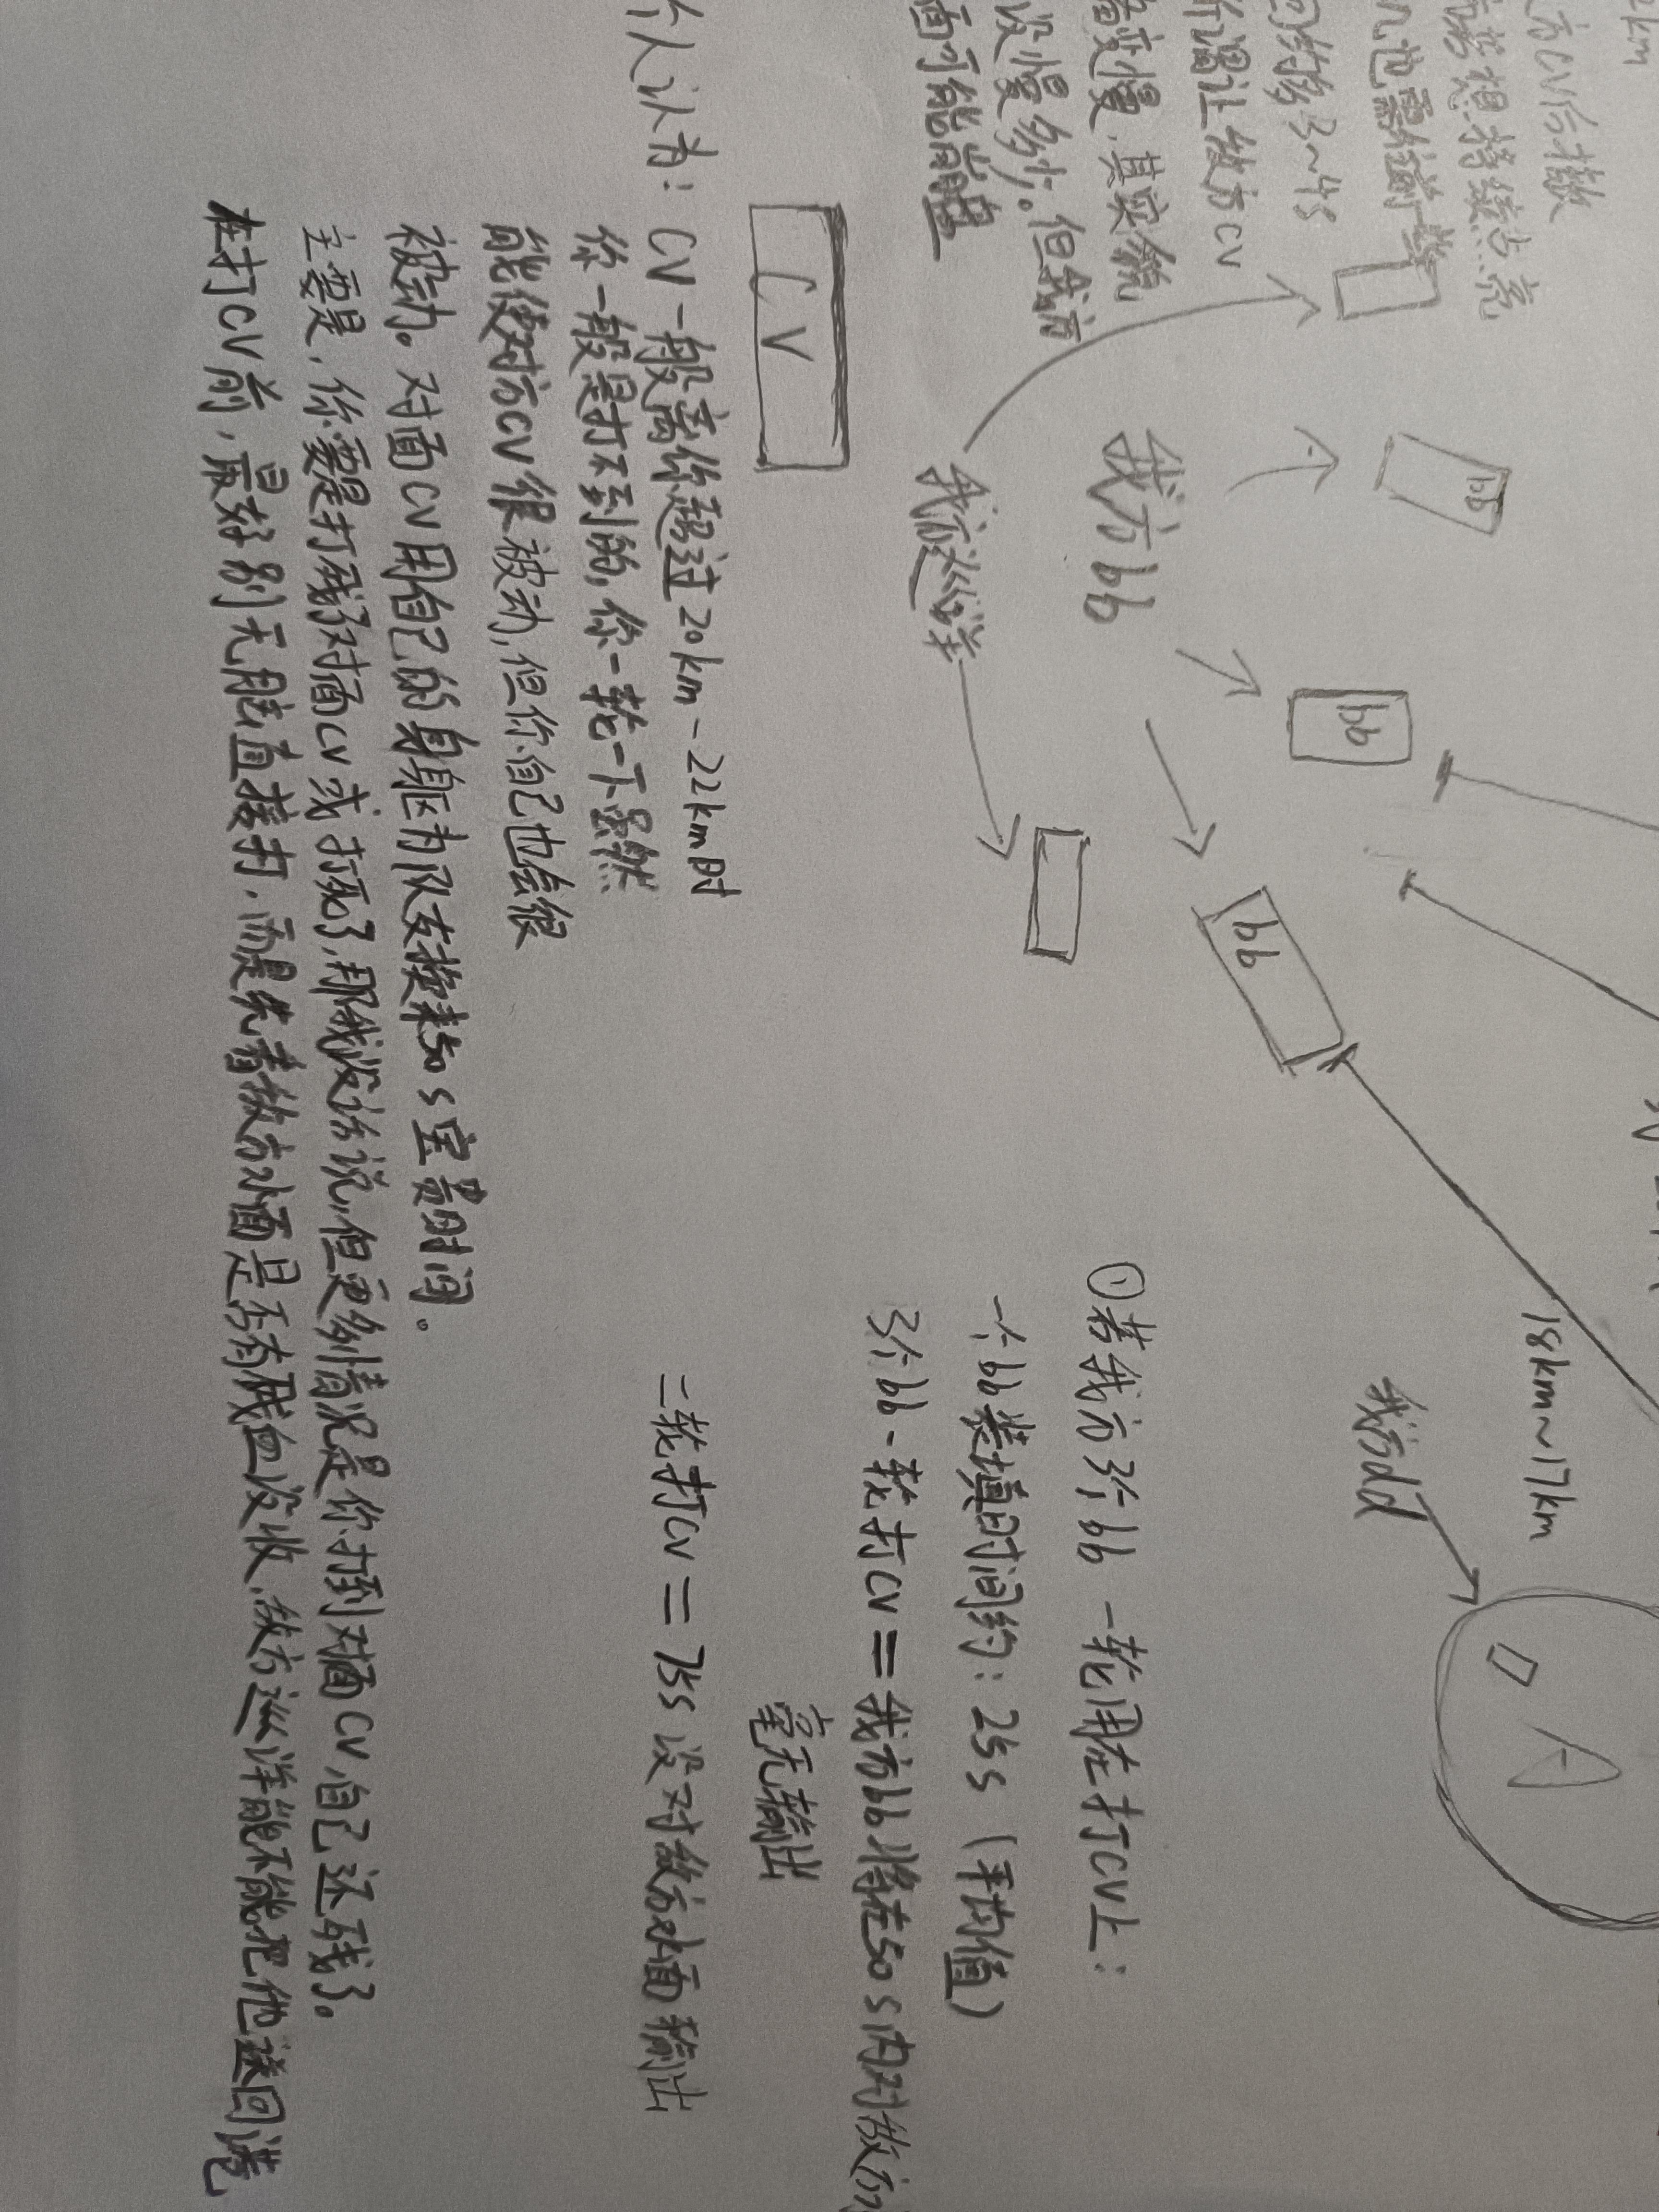 2km
方CV会撤
若想持续点亮
也需往前
3~4s
让敌方CV
变慢，其实貌
没慢多少。但我方
面可能崩盘
bb
bb
bb
我方bb
我方巡洋
18km~17km
我方dd
A
①若我方3个bb一轮用在打CV上：
一个bb装填时间约：25s（平均值）
3个bb一轮打CV＝我方bb将在50s内对敌方
毫无输出
二轮打CV＝75s没对敌方水面输出
CV
个人认为：CV一般离你超过20km-22km时
你一般是打不到的，你一轮一下虽然
能使对方CV很被动，但你自己也会很
被动。对面CV用自己的身躯为队友换来50s宝贵时间。
主要是，你要是打残了对面CV或打死了，那我没话说，但更多情况是你打到对面CV，自己还残了。
在打CV前，最好别无脑直接打，而是先看敌方水面是否有残血没收，敌方巡洋能不能把他送回港